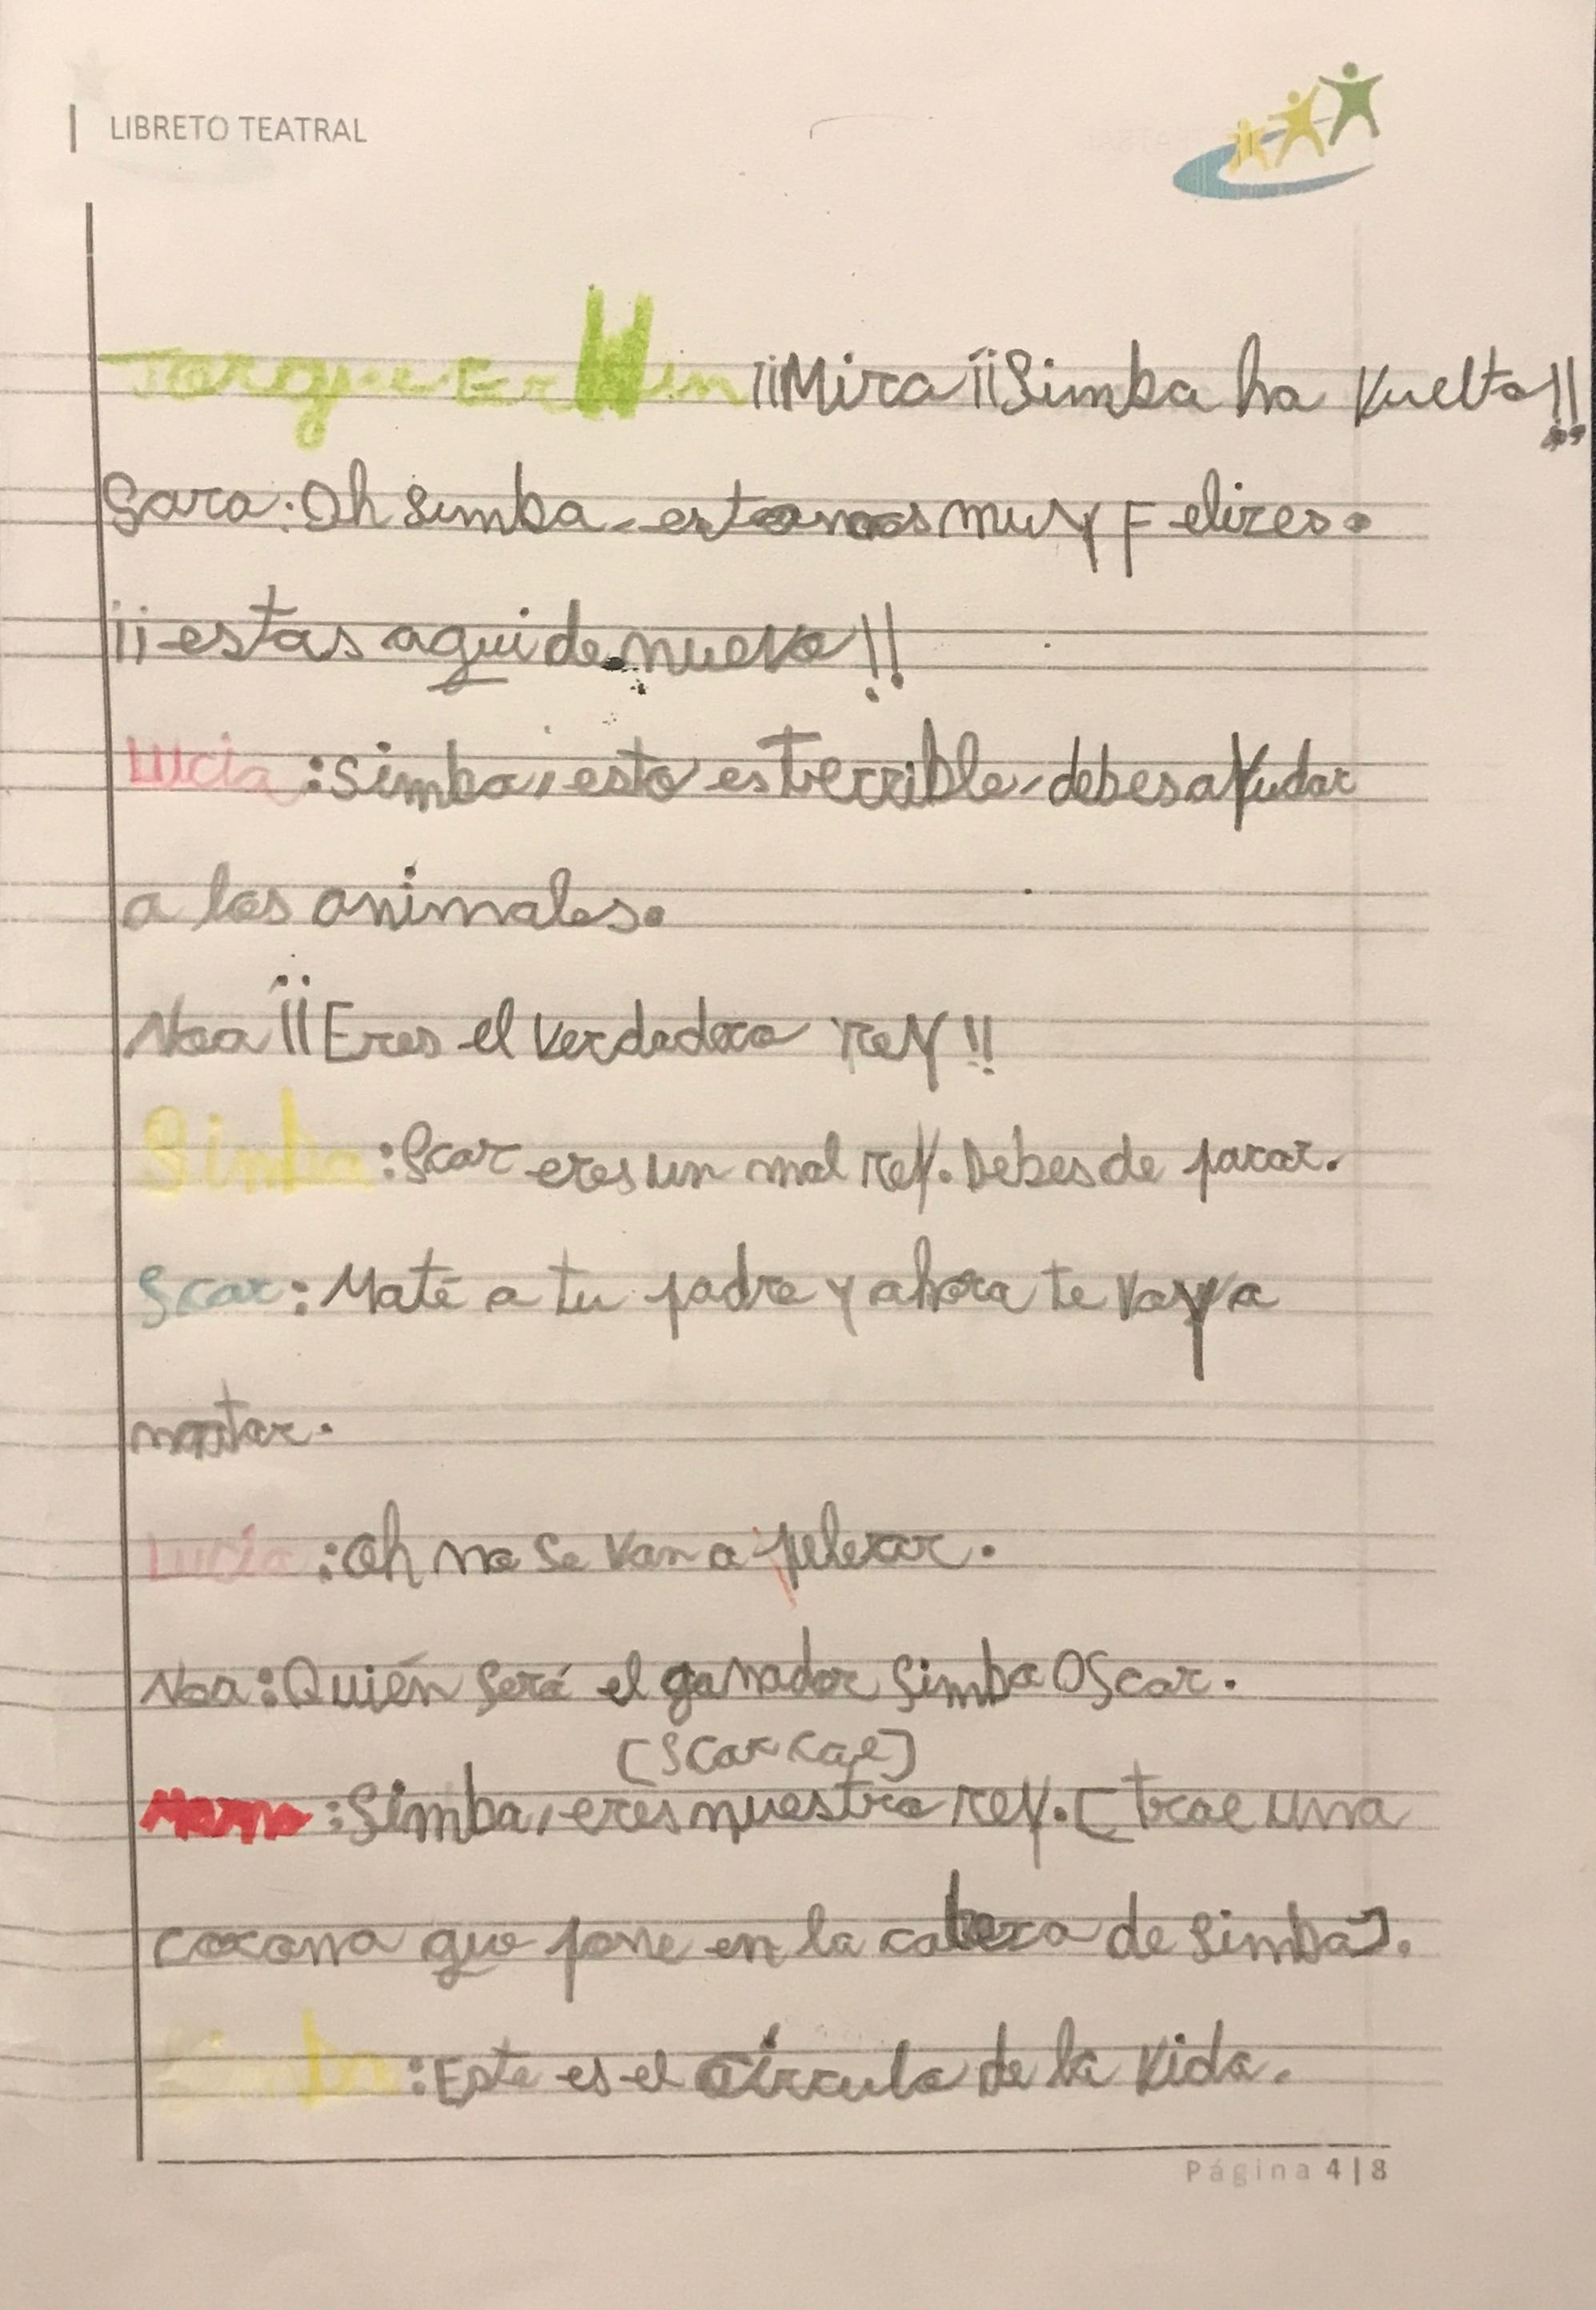 LIBRETO TEATRAL
¡¡Mira ¡¡Simba ha vuelto!!
Sara: Oh simba, estamos muy Felizes.
¡¡estas aqui de nuevo!!
Lucia: Simba, esto es terrible, debes ayudar
a los animales.
Noa ¡¡Eres el verdadero rey!!
Simba: Scar eres un mal rey. Debes de parar.
Scar: Maté a tu padre y ahora te voy a
matar.
Lucía: Oh no se van a pelear.
Noa: Quién será el ganador Simba O Scar.
[Scar cae]
: Simba, eres nuestro rey. [trae una
corona que pone en la cabeza de Simba].
Simba: Este es el círculo de la vida.
Página 4|8